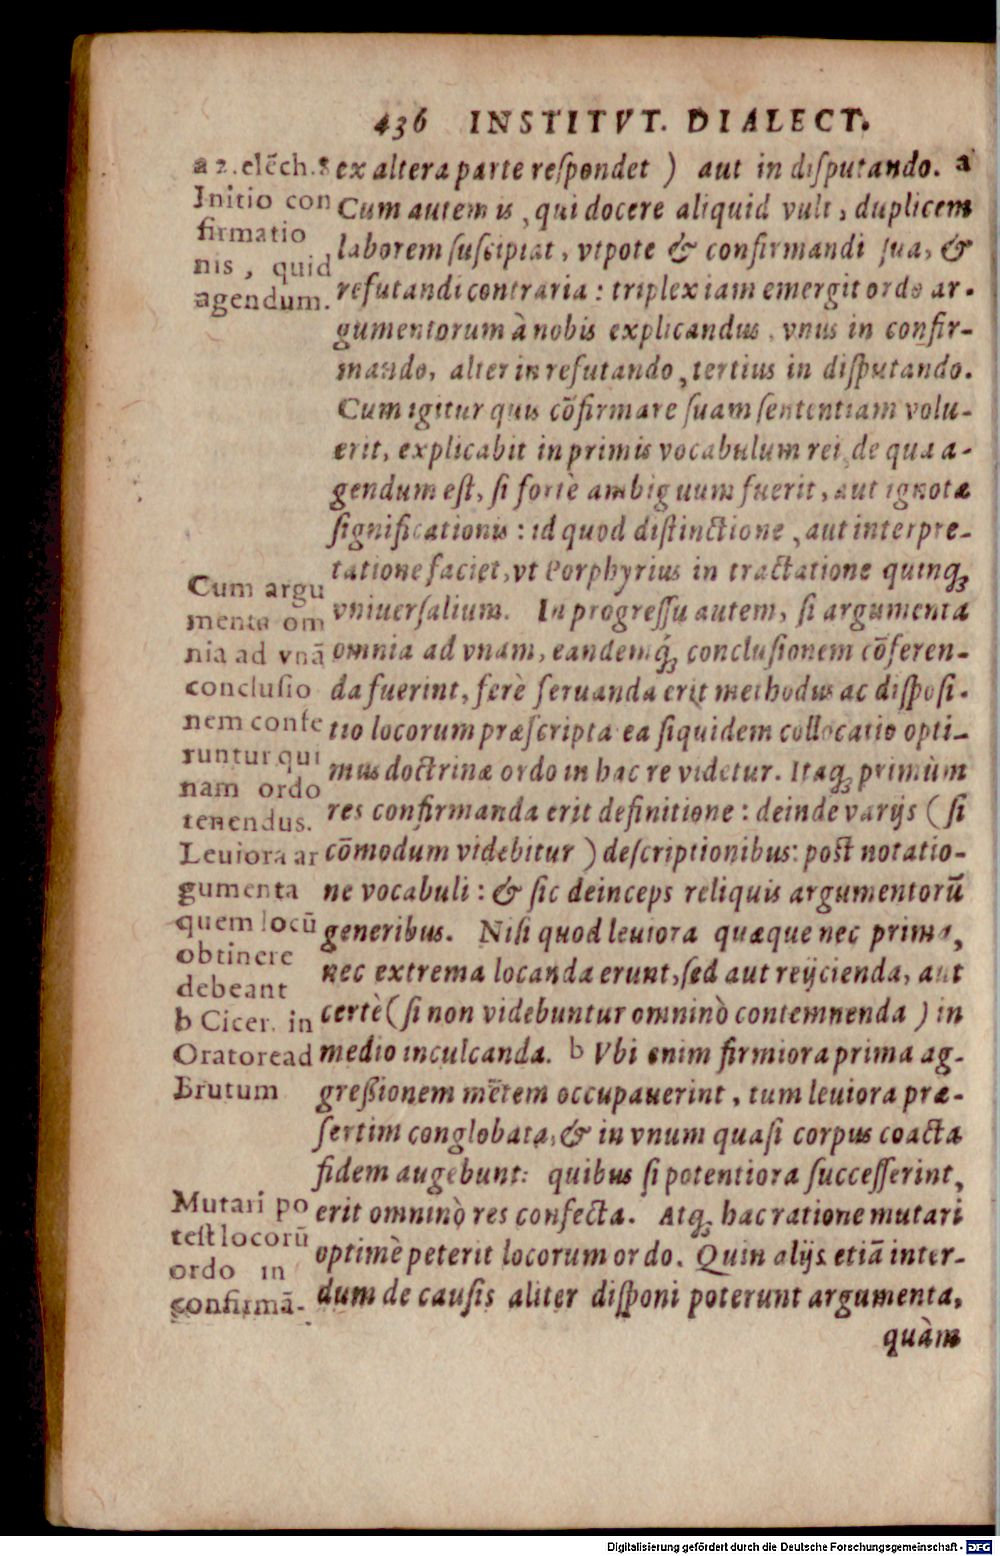 436 INSTITVT. DIALECT.
ex altera parte reſpondet ) aut in diſputando. a
Cum autem is, qui docere aliquid vult, duplicem
laborem ſuſcipiat, vtpote & confirmandi ſua, &
refutandi contraria : triplex iam emergit ordo ar-
gumentorum à nobis explicandus, vnus in confir-
mando, alter in refutando, tertius in diſputando.
Cum igitur quis cōfirmare ſuam ſententiam volu-
erit, explicabit in primis vocabulum rei, de qua a-
gendum eſt, ſi fortè ambiguum fuerit, aut ignotæ
ſignificationis : id quod diſtinctione, aut interpre-
tatione faciet, vt Porphyrius in tractatione quinq;
vniuerſalium. In progreſſu autem, ſi argumenta
omnia ad vnam, eandemq́; concluſionem cōferen-
da fuerint, ferè ſeruanda erit methodus ac diſpoſi-
tio locorum præſcripta ea ſiquidem collocatio opti-
mus doctrinæ ordo in hac re videtur. Itaq; primùm
res confirmanda erit definitione : deinde varijs ( ſi
cōmodum videbitur ) deſcriptionibus: poſt notatio-
ne vocabuli : & ſic deinceps reliquis argumentorū
generibus. Niſi quod leuiora quæque nec prima,
nec extrema locanda erunt, ſed aut reijcienda, aut
certè ( ſi non videbuntur omninò contemnenda ) in
medio inculcanda. b Vbi enim firmiora prima ag-
greßionem mētem occupauerint, tum leuiora præ-
ſertim conglobata, & in vnum quaſi corpus coacta
fidem augebunt: quibus ſi potentiora ſucceſſerint,
erit omninò res confecta. Atq; hac ratione mutari
optimè poterit locorum ordo. Quin alijs etiā inter-
dum de cauſis aliter diſponi poterunt argumenta,
quàm
a 2. elēch. 8
Initio con
firmatio
nis, quid
agendum.
Cum argu
menta om
nia ad vnā
concluſio
nem confe
runtur qui
nam ordo
tenendus.
Leuiora ar
gumenta
quem locū
obtinere
debeant
b Cicer. in
Oratore ad
Brutum
Mutari po
teſt locorū
ordo in
confirmā-
Digitalisierung gefördert durch die Deutsche Forschungsgemeinschaft - DFG